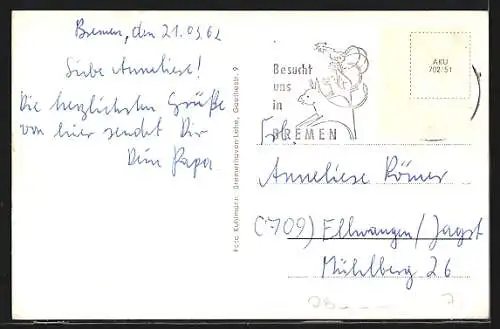 Bremen, den 21.03.62
Liebe Anneliese!
Die herzlichsten Grüße
von hier sendet Dir
Dein Papa
Foto Kuhlmann · Bremerhaven-Lehe, Goethestr. 9
Besucht
uns
in
BREMEN
AKU
702/51
Frl.
Anneliese Römer
(709) Ellwangen/Jagst
Mühlberg 26